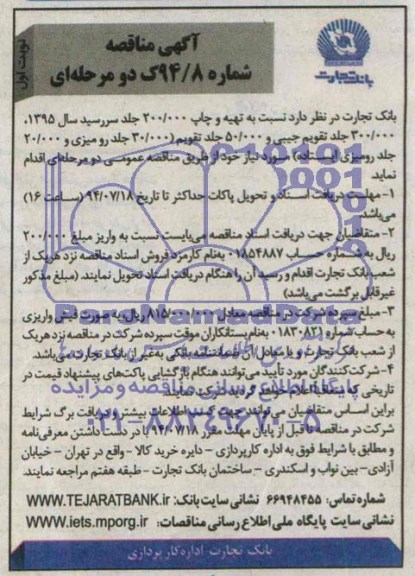 آگهی مناقصه
شماره ۹۴/۸ک دو مرحله‌ای
نوبت اول
بانک تجارت
بانک تجارت در نظر دارد نسبت به تهیه و چاپ ۲۰۰/۰۰۰ جلد سررسید سال ۱۳۹۵،
۳۰۰/۰۰۰ جلد تقویم جیبی و ۵۰/۰۰۰ جلد تقویم (۳۰/۰۰۰ جلد رو میزی و ۲۰/۰۰۰
جلد رومیزی ایستاده) مورد نیاز خود از طریق مناقصه عمومی دو مرحله‌ای اقدام
نماید.
۱- مهلت دریافت اسناد و تحویل پاکات حداکثر تا تاریخ ۹۴/۰۷/۱۸ (ساعت ۱۶)
می‌باشد.
۲- متقاضیان جهت دریافت اسناد مناقصه می‌بایست نسبت به واریز مبلغ ۲۰۰/۰۰۰
ریال به شماره حساب ۰۱۸۵۴۸۸۷ بنام کارمزد فروش اسناد مناقصه نزد هریک از
شعب بانک تجارت اقدام و رسید آن را هنگام دریافت اسناد تحویل نمایند. (مبلغ مذکور
غیرقابل برگشت می‌باشد)
۳- مبلغ سپرده شرکت در مناقصه معادل ۸۱۵/۰۰۰/۰۰۰ ریال به صورت فیش واریزی
به حساب شماره ۰۱۸۳۰۸۳۱ بنام بستانکاران موقت سپرده شرکت در مناقصه نزد هریک
از شعب بانک تجارت و یا معادل آن ضمانتنامه بانکی به غیر از بانک تجارت می‌باشد.
۴- شرکت‌کنندگان مورد تأیید می‌توانند هنگام بازگشایی پاکت‌های پیشنهاد قیمت در
تاریخی که متعاقباً اعلام خواهد گردید شرکت نمایند.
براین اساس متقاضیان می‌توانند جهت کسب اطلاعات بیشتر و دریافت برگ شرایط
شرکت در مناقصه تا قبل از پایان مهلت مقرر ۹۴/۰۷/۱۸ با در دست داشتن معرفی‌نامه
و مطابق با شرایط فوق به اداره کارپردازی - دایره خرید کالا - واقع در تهران - خیابان
آزادی- بین نواب و اسکندری - ساختمان بانک تجارت - طبقه هفتم مراجعه نمایند.
شماره تماس: ۶۶۹۴۸۴۵۵ نشانی سایت بانک: WWW.TEJARATBANK.ir
نشانی سایت پایگاه ملی اطلاع رسانی مناقصات: WWW.iets.mporg.ir
بانک تجارت-اداره کارپردازی
ParsNamadData
پایگاه اطلاع رسانی مناقصه و مزایده
۰۲۱-۸۸۳۴۹۶۷۰-۵